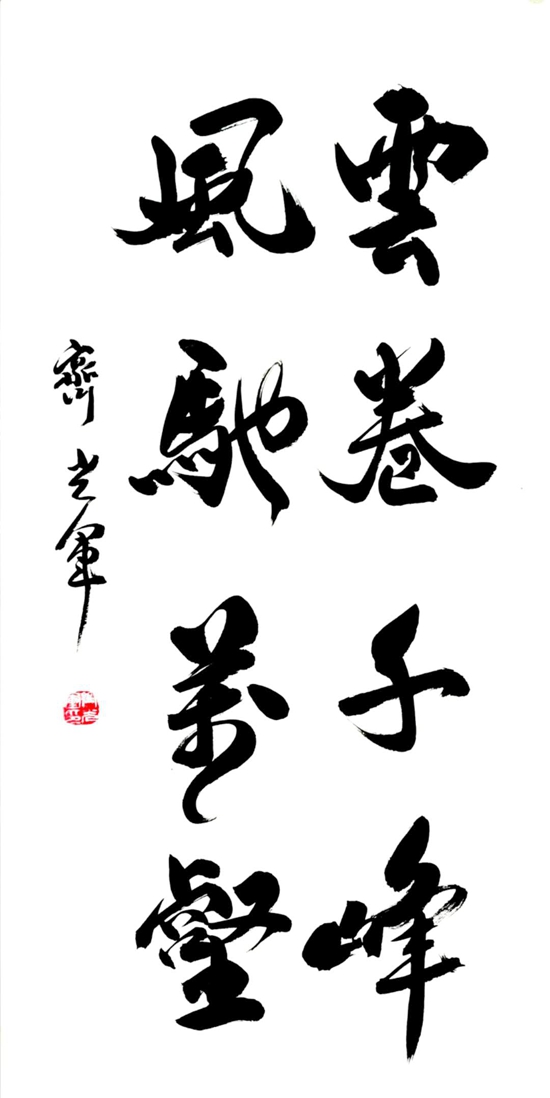 雲卷千峰
風馳萬壑
齊光軍